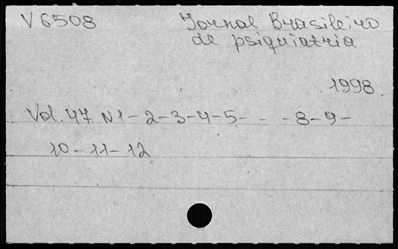 V 6508 Jornal Brasileiro
de psiquiatria
1998
Vol. 47 N 1-2-3-4-5- - -8-9-
10-11-12